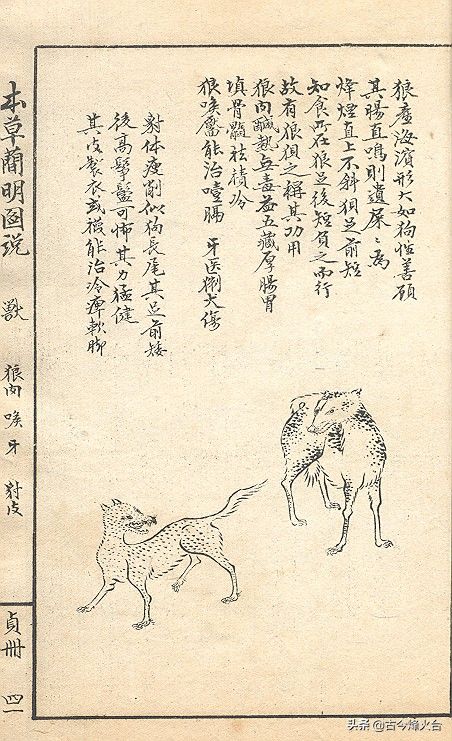 狼產海濱形大如狗性善顧
其腸直鳴則遺屎〻為
烽煙直上不斜狽足前短
知食所在狼足後短負之而行
故有狼狽之稱其功用
狼肉鹹熱無毒益五藏厚腸胃
填骨髓祛積冷
狼喉靨能治噎膈 牙医猘犬傷
豺体瘦削似狗長尾其足前矮
後高鬃鬣可怖其力猛健
其皮製衣或褥能治冷痺軟脚
本草簡明图説 獸 狼肉 喉 牙 豺皮
貞冊 四一
头条@古今烽火台